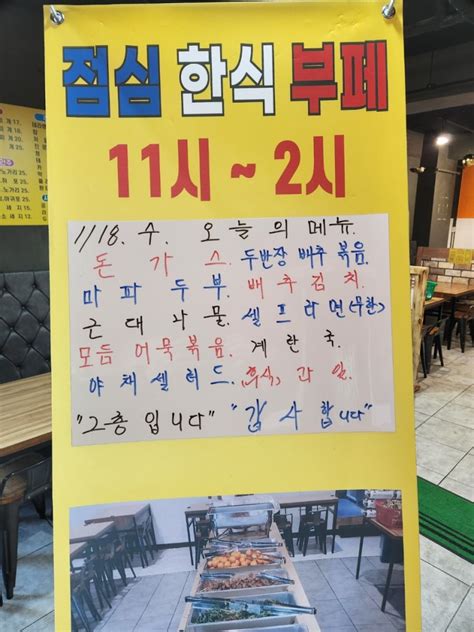 점심 한식 부페
11시 ~ 2시
1/18. 수. 오늘의 메뉴.
돈 가 스. 두반장 배추 볶음.
마 파 두 부. 배추김치.
근 대 나 물. 셀프라면(무한)
모듬 어묵볶음. 계 란 국.
야 채 셀 러 드. (후식) 과 일.
"2층 입니다" "감 사 합니다"